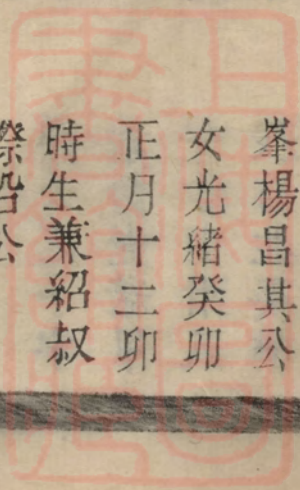 峯楊昌其公
女光緒癸卯
正月十二卯
時生兼紹叔
公